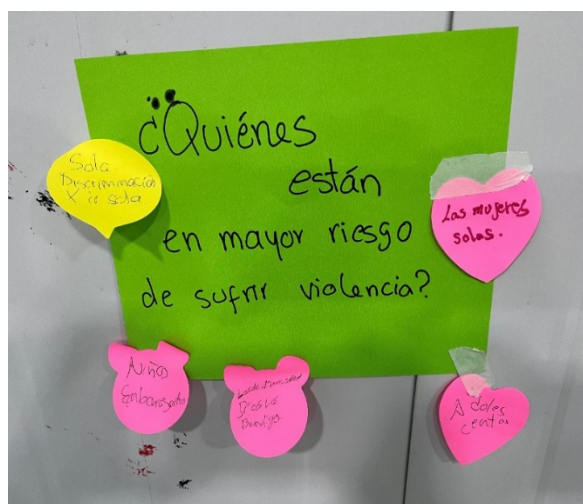 ¿Quiénes
están
en mayor riesgo
de sufrir violencia?
Sola
Discriminación
X ir sola
Las mujeres
solas.
Niña
Enbarazada
Adoles
centas